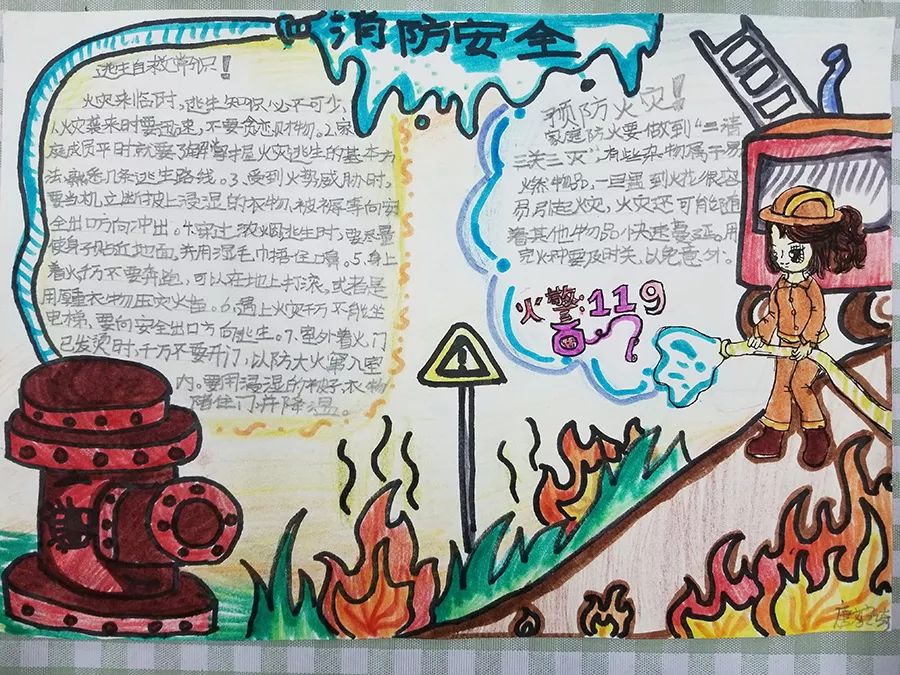 消防安全
逃生自救常识！
火灾来临时，逃生知识必不可少，
1.火灾袭来时要迅速，不要贪恋财物。2.家
庭成员平时就要了解掌握火灾逃生的基本方
法，熟悉几条逃生路线。3、受到火势威胁时，
要当机立断披上浸湿的衣物，被褥等向安
全出口方向冲出。4.穿过浓烟逃生时，要尽量
使身子贴近地面，并用湿毛巾捂住口鼻。5.身上
着火千万不要奔跑，可以在地上打滚，或者是
用厚重衣物压灭火苗。6.遇上火灾千万不能坐
电梯，要向安全出口方向逃生。7.室外着火，门
已发烫时，千万不要开门，以防大火窜入室
内。要用浸湿的被子、衣物
堵住门并降温。
预防火灾！
家庭防火要做到“三清
三关三灭”，有些杂物属于易
燃物品，一旦遇到火花很容
易引起火灾，火灾还可能随
着其他物品快速蔓延。用
完火种要及时关，以免意外。
火警：119